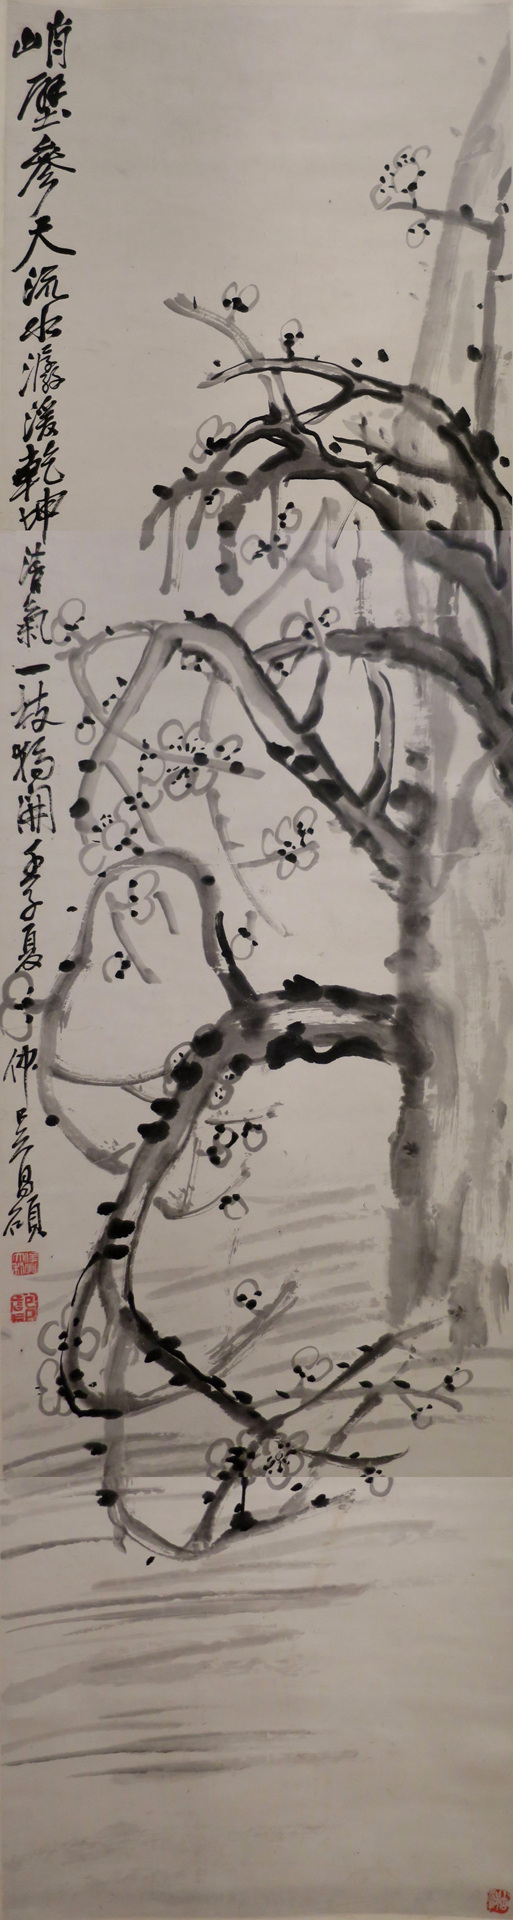 峭壁參天流水潺湲乾坤清氣一枝獨開壬子夏仲吳昌碩